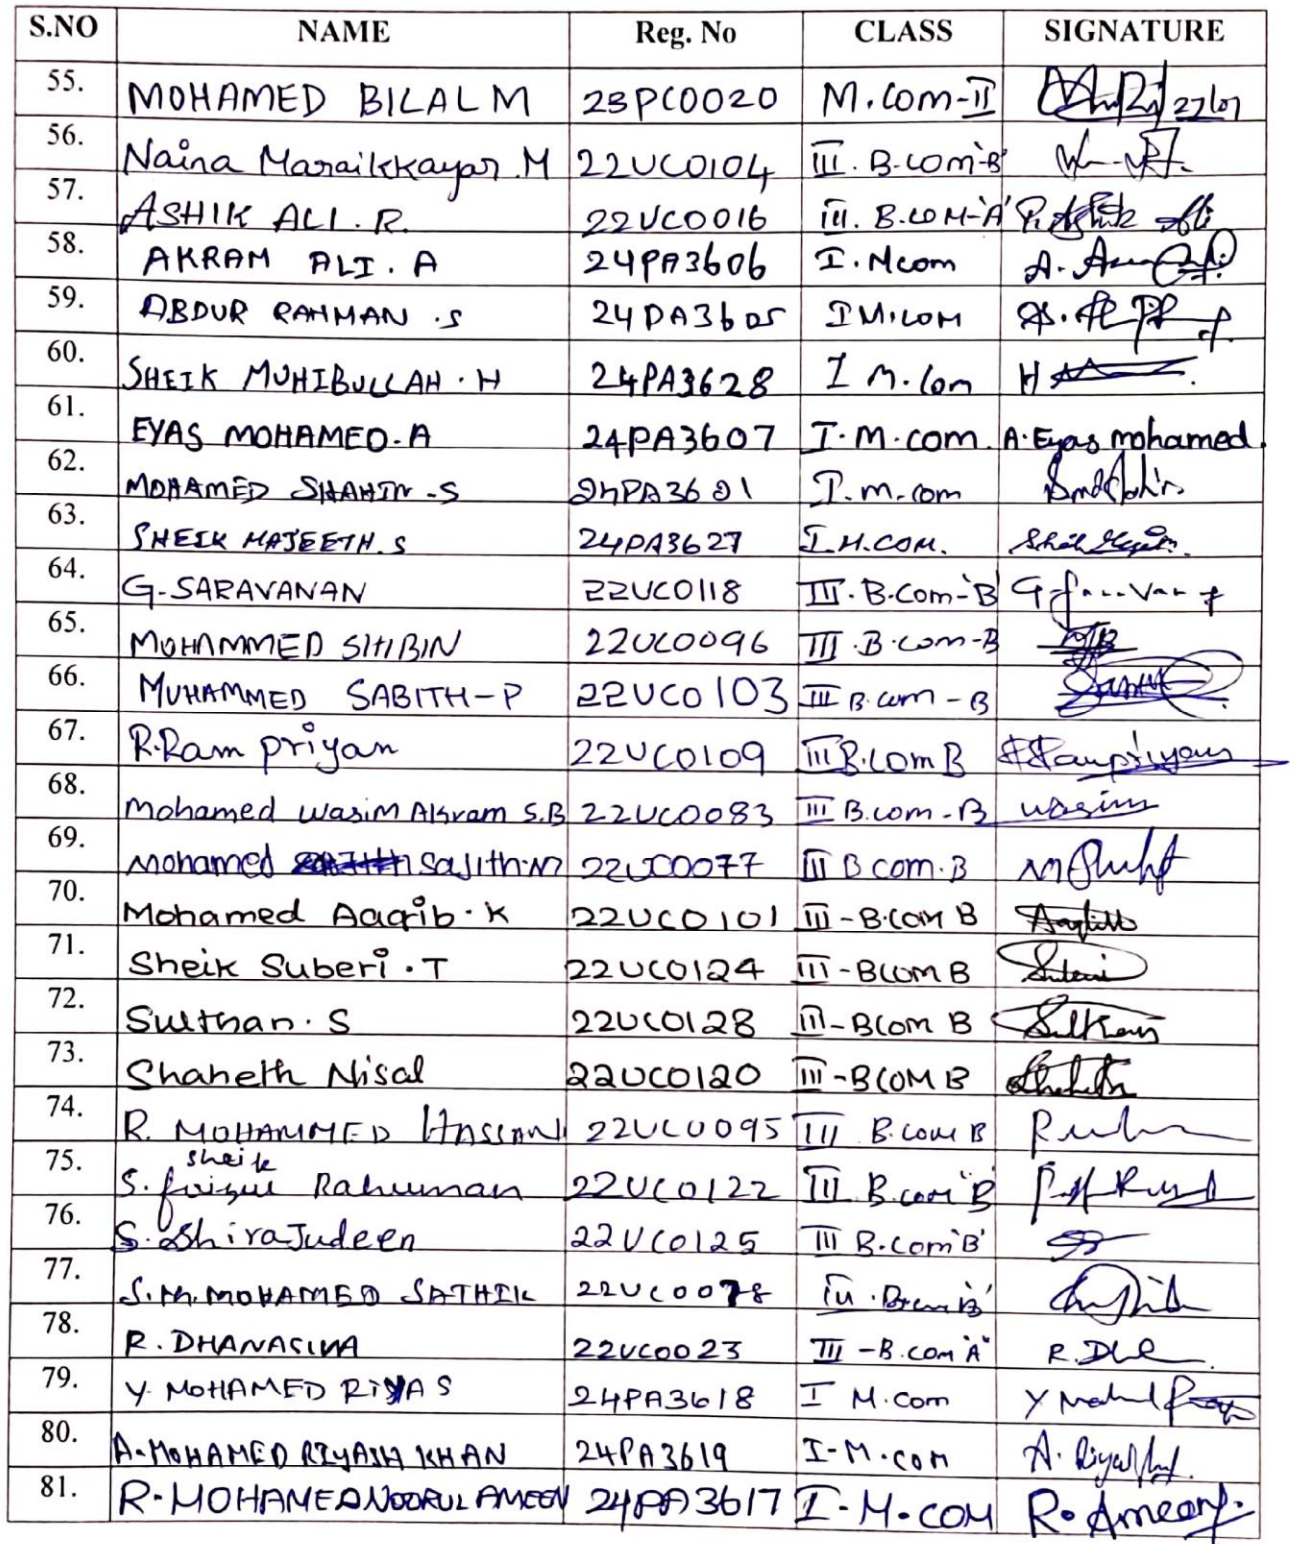 S.NO NAME Reg. No CLASS SIGNATURE
55. MOHAMED BILAL M 23PC0020 M.Com-II 27/07
56. Naina Maraikkayar.M 22UC0104 III. B.com-'B'
57. ASHIK ALI. R. 22UC0016 III. B.COM-'A' R. Ashik Ali
58. AKRAM ALI. A 24PA3606 I. Mcom
59. ABDUR RAHMAN .S 24PA3605 I M.COM
60. SHEIK MUHIBULLAH. H 24PA3628 I M.Com H
61. EYAS MOHAMED. A 24PA3607 I. M. com. A. Eyas mohamed.
62. MOHAMED SHAHIN .S 24PA3621 I. m. com
63. SHEIK MAJEETH. S 24PA3627 I. M. COM.
64. G. SARAVANAN 22UC0118 III. B.Com-'B'
65. MOHAMMED SIHIBIN 22UC0096 III. B.com-B
66. MUHAMMED SABITH-P 22UC0103 III B.com - B
67. R.Ram priyan 22UC0109 III B.Com B R Rampriyan
68. Mohamed Wasim Akram S.B 22UC0083 III B.com-B Wasim
69. Mohamed Sajith.M 22UC0077 III B com.B
70. Mohamed Aaqib. K 22UC0101 III-B.COM B Aaqib
71. Sheik Suberi. T 22UC0124 III-BCOM B Suberi
72. Sulthan. S 22UC0128 III-BCom B Sulthan
73. Shaheth Nisal 22UC0120 III-BCOM B Shaheth
74. R. MOHAMMED HASSAN 22UC0095 III B.com B
75. S. sheik faizul Rahuman 22UC0122 III B.com "B"
76. S. Shirajudeen 22UC0125 III B.com 'B'
77. S.M. MOHAMED SATHIK 22UC0078 III. B.com 'B'
78. R. DHANASIVA 22UC0023 III-B.com 'A' R.Dh
79. Y. MOHAMED RIYAS 24PA3618 I M.Com
80. A. MOHAMED RIYASH KHAN 24PA3619 I-M.com
81. R. MOHAMED NOORUL AMEEN 24PA3617 I-M.COM R. Ameen